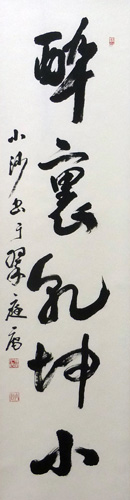 醉裏乾坤小
小沙书于翠庭居